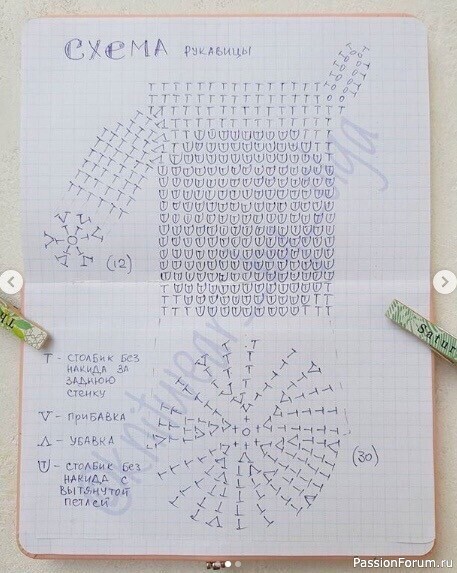 СХЕМА РУКАВИЦЫ
(12)
Т - СТОЛБИК БЕЗ
НАКИДА ЗА
ЗАДНЮЮ
СТЕНКУ
V - ПРИБАВКА
Λ - УБАВКА
- СТОЛБИК БЕЗ
НАКИДА С
ВЫТЯНУТОЙ
ПЕТЛЕЙ
(30)
Satur
PassionForum.ru